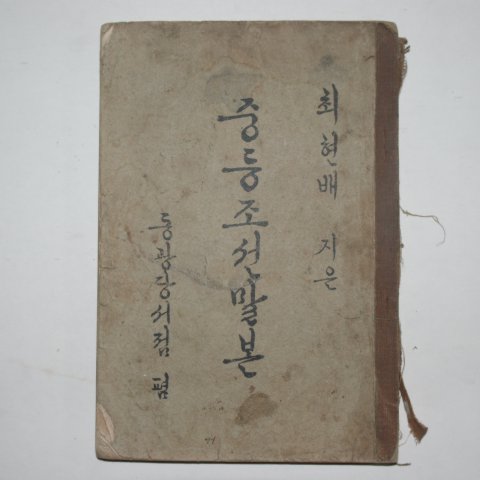 최현배 지은
중등조선말본
동광당서점 펌